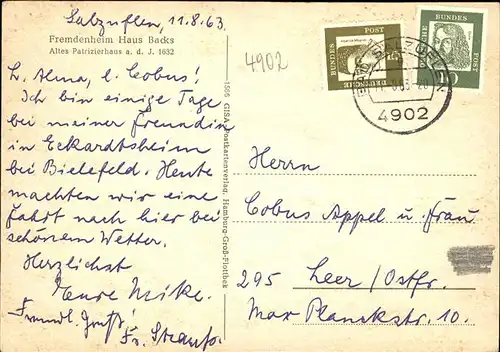 Salzuflen, 11.8.63.
Fremdenheim Haus Backs
Altes Patrizierhaus a. d. J. 1632
4902
L. Alma, l. Cobus!
Ich bin einige Tage
bei meiner Freundin
in Eckardtsheim
bei Bielefeld. Heute
machten wir eine
Fahrt nach hier bei
schönem Wetter.
Herzlichst
Eure Meike.
Freundl. Gruß!
Fr.
1595 GISA Postkartenverlag, Hamburg-Groß-Flottbek
DEUTSCHE
BUNDES
POST
BUNDES
POST
4902
Herrn
Cobus Appel u. Frau
295 Leer/Ostfr.
Max Planckstr. 10.